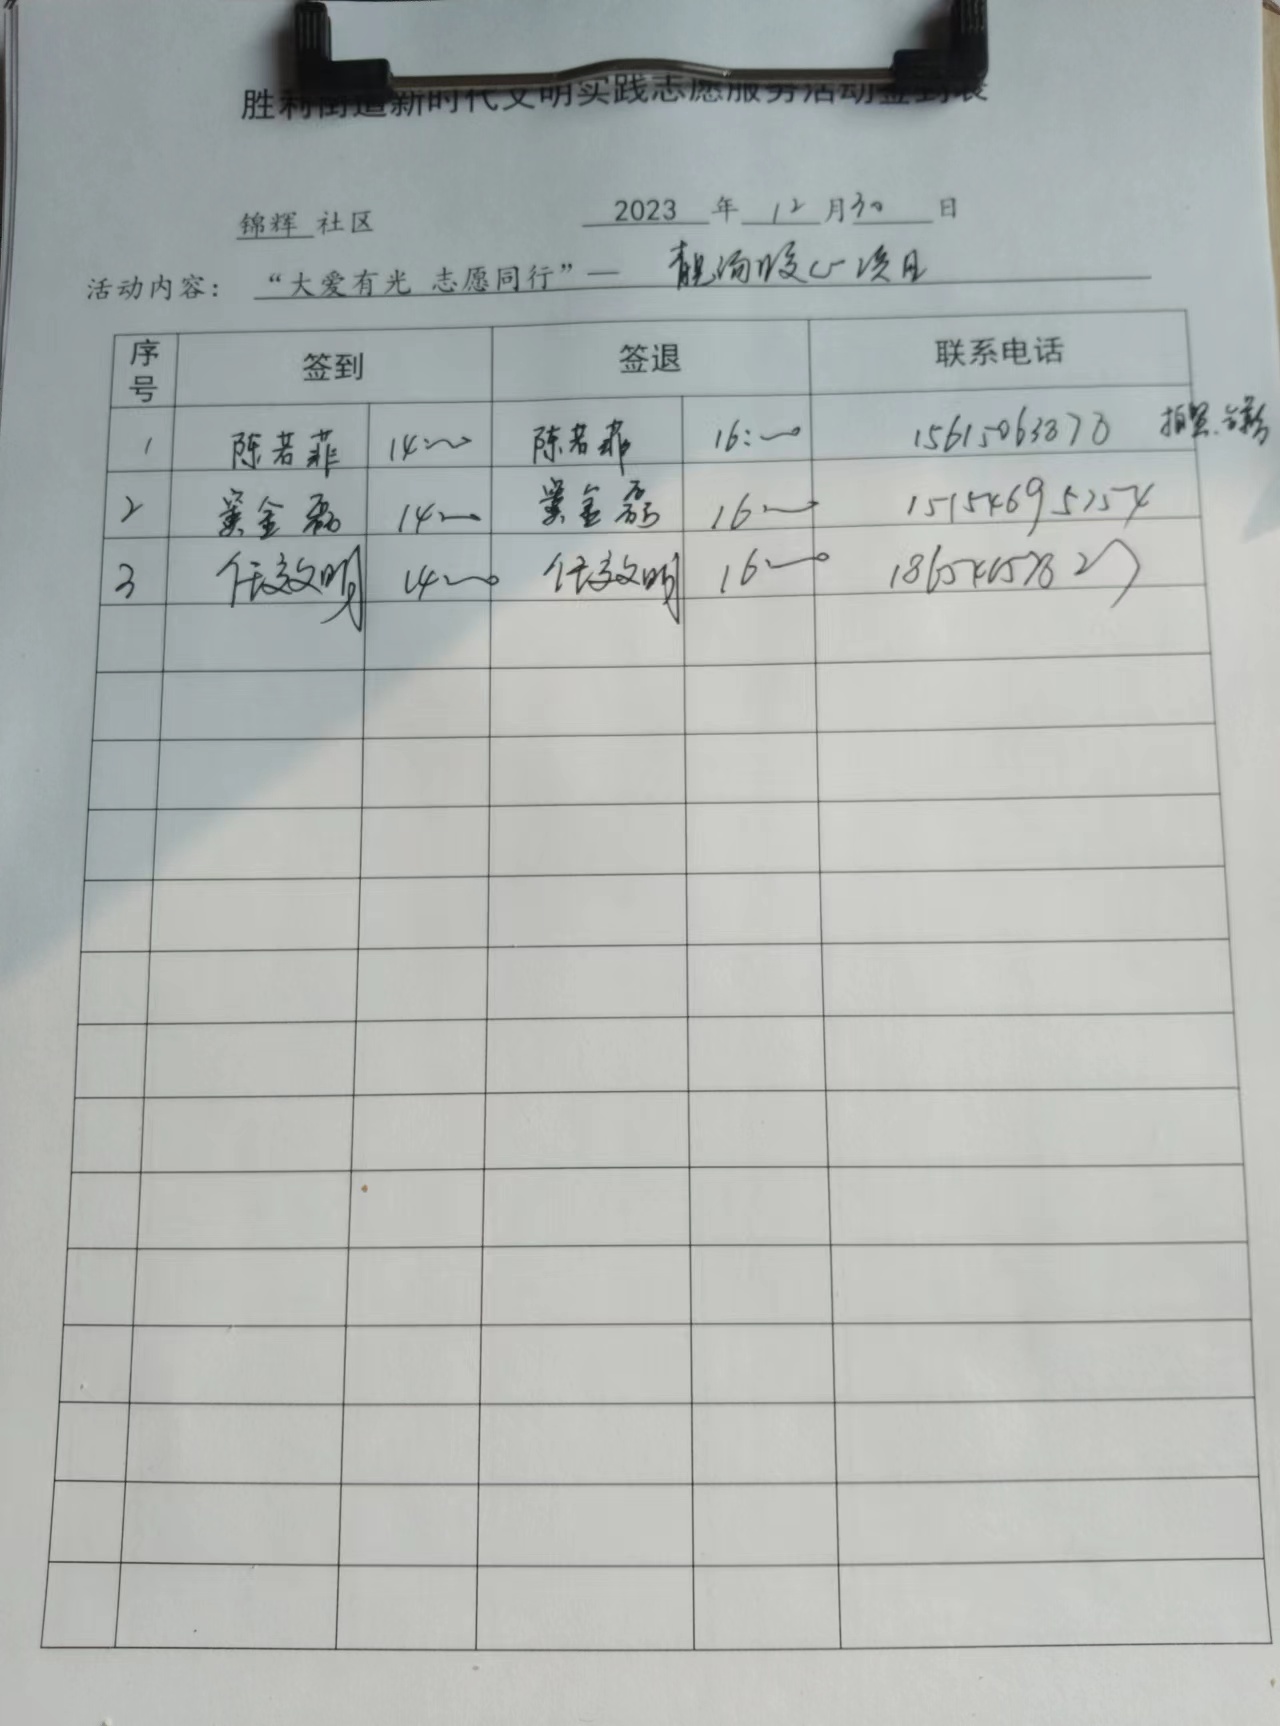 胜利街道新时代文明实践志愿服务活动签到表
锦辉 社区 2023 年 12 月 30 日
活动内容：“大爱有光 志愿同行”— 靓汤暖心项目
序号 签到 签退 联系电话
1 陈若菲 14:00 陈若菲 16:00 15615063878 拍照
2 窦金磊 14:00 窦金磊 16:00 15154695754
3 任效明 14:00 任效明 16:00